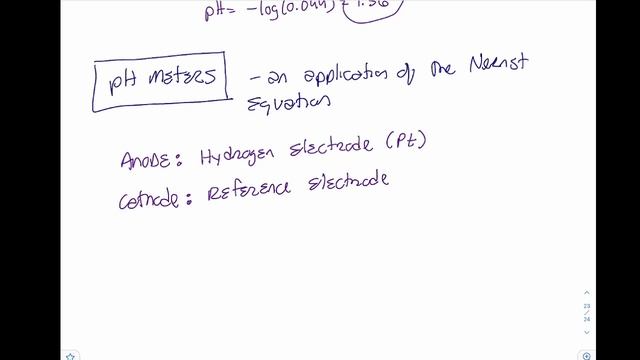 pH = -log(0.044) = 1.36
pH meters - an application of the Nernst
Equation
Anode: Hydrogen electrode (Pt)
Cathode: Reference electrode
23
/
24